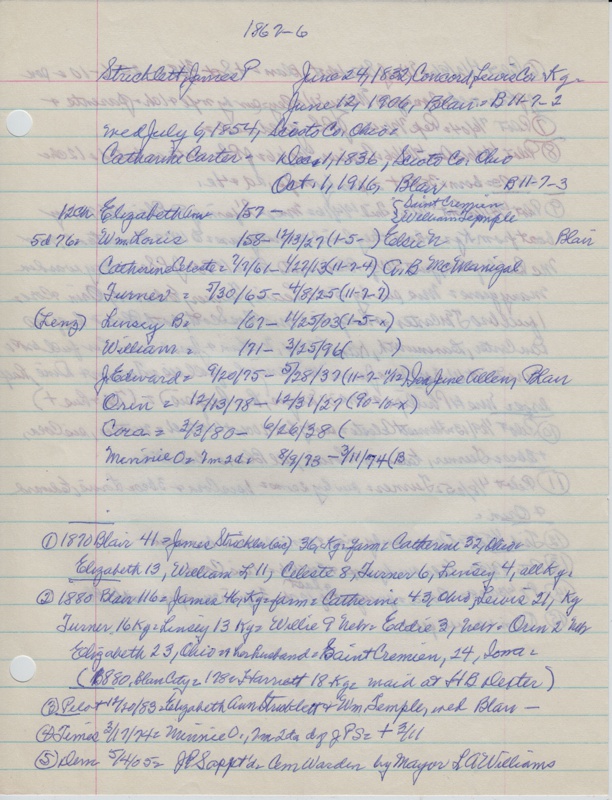 1862-6
Stricklett, James P June 24, 1832, Concord, Lewis Co Kg=
June 12, 1906, Blair= B 11-7-2
wed July 6, 1854, Scioto Co, Ohio=
Catharine Carter= Dec 1, 1836, Scioto Co, Ohio
Oct. 1, 1916, Blair B 11-7-3
12ch Elizabeth Ann '57- {Saint Cremien
{William Semple
5d 76= Wm Louis '58- 12/13/27 (1-5- ) Eddie N Blair
Catharine Celeste= 7/7/61- 4/22/13 (11-7-4) A B McManigal
Turner= 5/30/65- 4/8/25 (11-7-7)
(Lenz) Linsey B= '67- 1/25/03 (1-5-x)
William= '71- 3/25/96 ( )
J. Edward= 9/20/75- 5/28/37 (11-7-11/12) Ida Jane Allen, Blair
Orin= 12/13/78- 12/31/27 (90-10-x)
Cora= 3/3/80- 6/26/38 (
Minnie O= 7m 2d= 8/9/73- 3/11/74 (B
① 1870 Blair 41= James Stricklen (sic) 36, Kg= farm= Catharine 32, Ohio=
Elizabeth 13, William L 11, Celeste 8, Turner 6, Linsey 4, all Kg=
② 1880 Blair 116= James 46, Kg= farm= Catherine 43, Ohio, Lewis 21, Kg
Turner 16 Kg= Linsy 13 Kg= Willie 9 Nebr= Eddie 3, Nebr= Orin 2 Nebr
Elizabeth 23, Ohio= & her husband= Saint Cremien, 24, Iowa=
(1880, Blair City= 178= Harriett 18 Kg= maid at H B Dexter)
③ Pilot 12/20/83= Elizabeth Ann Stricklett & Wm Semple, wed Blair-
④ Times 3/17/74= Minnie O., 7m 2da dg JPS= + 3/11
⑤ Dem 5/4/05= JPS app't'd= Cem Warden by Mayor L A Williams